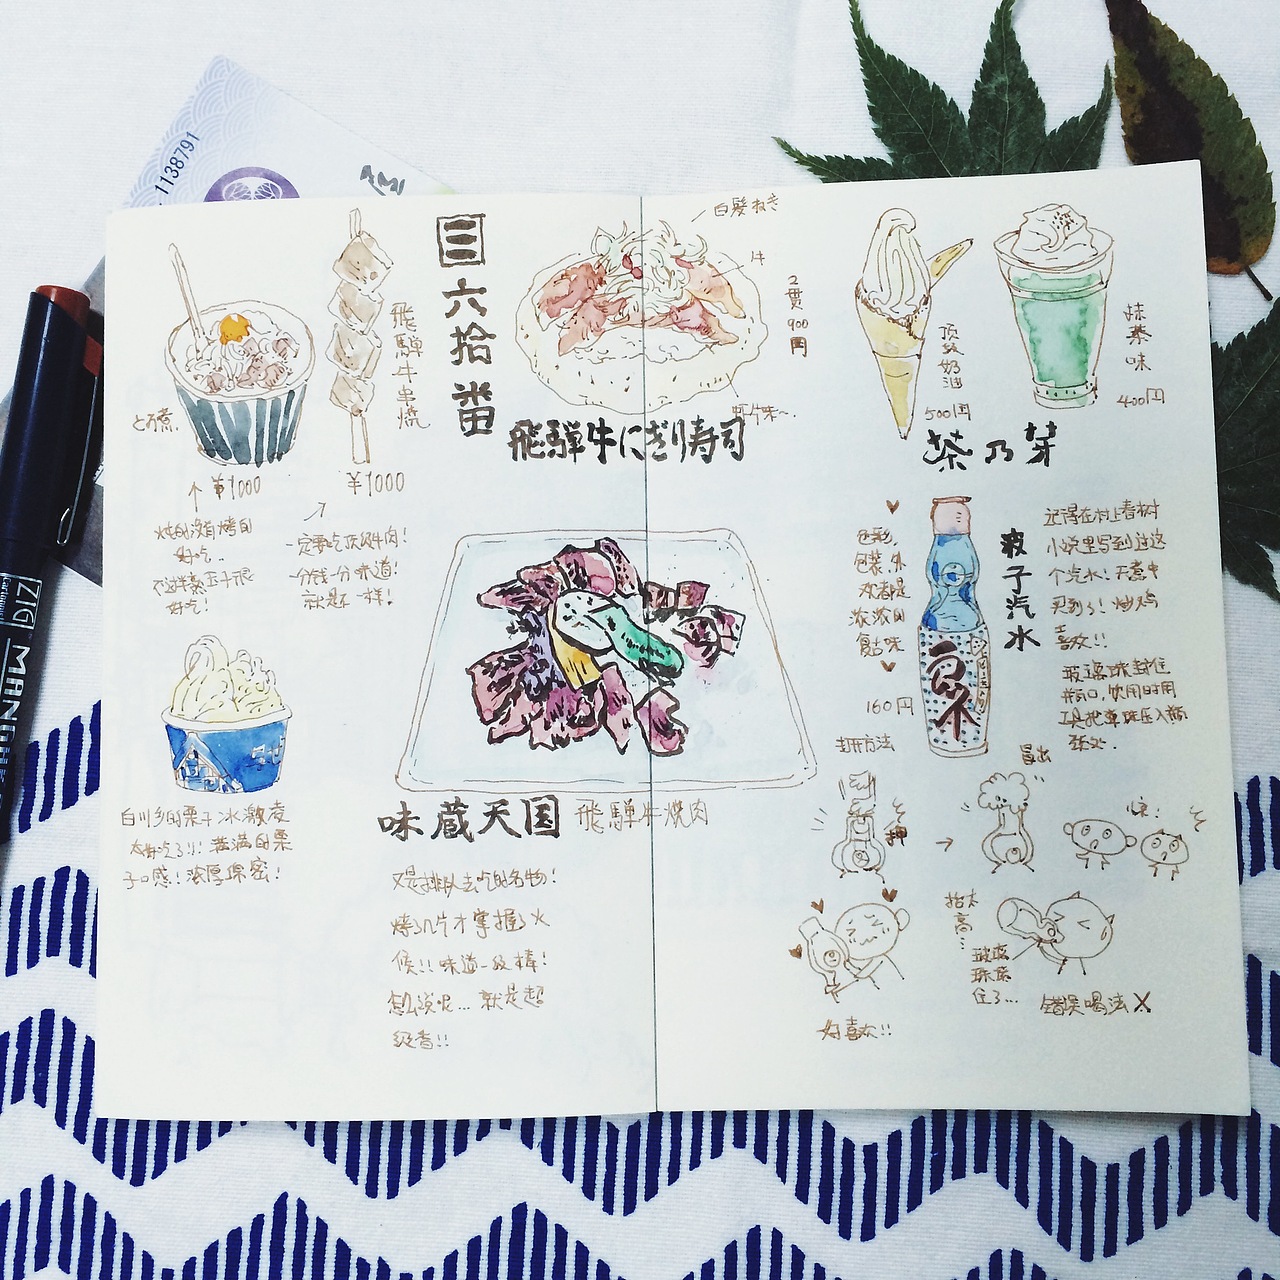 1138791
ZIG
飛騨牛串焼
¥1000
¥1000
炖的没有烤的
好吃..
好吃!
一定要吃顶级牛肉!
一分钱一分味道!
就是不一样!
六拾番
白髪ねぎ
2貫900円
飛騨牛にぎり寿司
顶级奶油
500円
抹茶味
400円
茶乃芽
白川乡的栗子冰激凌
太好吃了!! 满满的栗
子口感! 浓厚绵密!
味蔵天国 飛騨牛焼肉
又是排队去吃的名物!
烤了几片才掌握了火
候!! 味道一级棒!
怎么说呢... 就是超
级香!!
色彩,
包装, 外
观都是
浓浓的
復古味
160円
波子汽水
记得在村上春树
小说里写到过这
个汽水! 无意中
买到了! 炒鸡
喜欢!!
玻璃珠封住
瓶口, 饮用时用
工具把玻璃珠压入瓶
打开方法
押
冒出
惊!
好喜欢!!
抬太
高...
玻璃
珠堵
住了...
错误喝法×